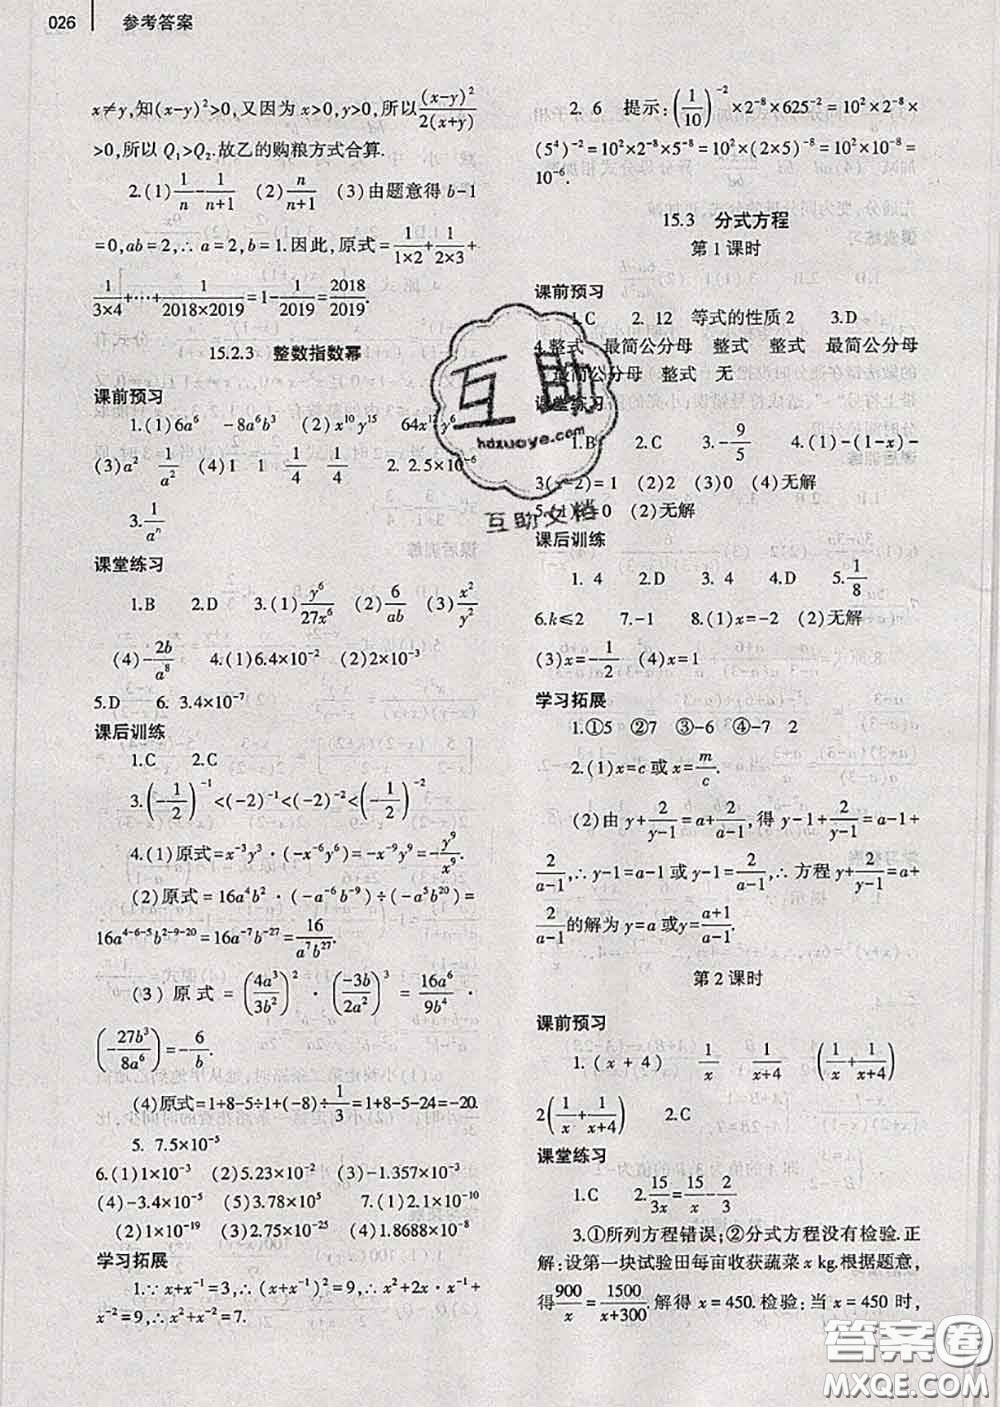 026 参考答案
x≠y,知(x-y)²>0,又因为 x>0,y>0,所以 (x-y)²/2(x+y)
>0,所以 Q₁>Q₂.故乙的购粮方式合算.
2.(1) 1/n - 1/(n+1) (2) n/(n+1) (3)由题意得 b-1
=0,ab=2,∴a=2,b=1.因此,原式= 1/(1×2) + 1/(2×3) +
1/(3×4) +…+ 1/(2018×2019) =1- 1/2019 = 2018/2019.
15.2.3 整数指数幂
课前预习
1.(1)6a⁶ -8a⁶b³ (2)x¹⁰y¹⁵ 64x¹²y⁶
(3)a² 1/a² (4)1 1 1/4 1/4 2. 2.5×10⁻⁶
3. 1/aⁿ
课堂练习
1.B 2.D 3.(1) y⁶/27x⁶ (2) b⁶/a² (3) x²/y²
(4)- 2b/a⁸ 4.(1)6.4×10⁻² (2)2×10⁻³
5.D 6. 3.4×10⁻⁷
课后训练
1.C 2.C
3.(-1/2)⁻¹<(-2)⁻¹<(-2)⁻²<(-1/2)⁻²
4.(1)原式=x⁻³y³·(-x⁻⁶y⁶)=-x⁻⁹y⁹=- y⁹/x⁹.
(2)原式=16a⁴b²·(-a⁻⁶b⁻⁹)÷(-a⁵b²⁰)=
16a⁴⁻⁶⁻⁵b²⁻⁹⁻²⁰=16a⁻⁷b⁻²⁷= 16/a⁷b²⁷.
(3)原式=(4a³/3b²)²·(-3b/2a²)³= 16a⁶/9b⁴ ·
(-27b³/8a⁶)=- 6/b.
(4)原式=1+8-5÷1+(-8)÷1/3=1+8-5-24=-20.
5. 7.5×10⁻⁵
6.(1)1×10⁻³ (2)5.23×10⁻² (3)-1.357×10⁻³
(4)-3.4×10⁻⁵ (5)3.78×10⁵ 7.(1)2.1×10⁻¹⁰
(2)1×10⁻¹⁹ (3)2.75×10⁻²⁵ (4)1.8688×10⁻⁸
学习拓展
1.∵x+x⁻¹=3,∴(x+x⁻¹)²=9,∴x²+2x·x⁻¹+
x⁻²=9,∴x²+x⁻²=7.
2. 6 提示:(1/10)⁻²×2⁻⁸×625⁻²=10²×2⁻⁸×
(5⁴)⁻²=10²×2⁻⁸×5⁻⁸=10²×(2×5)⁻⁸=10²×10⁻⁸=
10⁻⁶.
15.3 分式方程
第1课时
课前预习
1.C 2. 12 等式的性质2 3.D
4.整式 最简公分母 整式 整式 最简公分母
最简公分母 整式 无
课堂练习
1.B 2.C 3.- 9/5 4.(1)-(1-x)-
3(x-2)=1 (2)2 (3)0 (4)无解
5.(1) 0 (2)无解
课后训练
1. 4 2.D 3. 4 4.D 5. 1/8
6.k≤2 7.-1 8.(1)x=-2 (2)无解
(3)x=- 1/2 (4)x=1
学习拓展
1.①5 ②7 ③-6 ④-7 2
2.(1)x=c 或 x= m/c.
(2)由 y+ 2/(y-1) =a+ 2/(a-1),得 y-1+ 2/(y-1) =a-1+
2/(a-1),∴y-1=a-1 或 y-1= 2/(a-1),∴方程 y+ 2/(y-1) =a+
2/(a-1) 的解为 y=a 或 y= (a+1)/(a-1).
第2课时
课前预习
1.(x+4) 1/x 1/(x+4) (1/x + 1/(x+4))
2(1/x + 1/(x+4)) 2.C
课堂练习
1.C 2. 15/3x = 15/x - 2/3
3.①所列方程错误;②分式方程没有检验.正
解:设第一块试验田每亩收获蔬菜 x kg.根据题意,
得 900/x = 1500/(x+300).解得 x=450.检验:当 x=450 时,
互助
hdzuoye.com
互助文档
答案圈
MXQE.COM